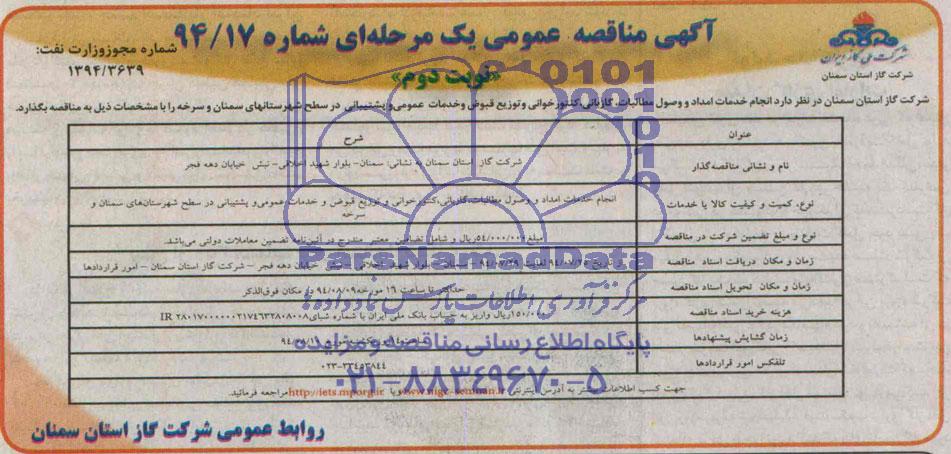 آگهی مناقصه عمومی یک مرحله‌ای شماره ۹۴/۱۷
شماره مجوزوزارت نفت:
۱۳۹۴/۳۶۳۹
«نوبت دوم»
شرکت ملی گاز ایران
شرکت گاز استان سمنان
شرکت گاز استان سمنان در نظر دارد انجام خدمات امداد و وصول مطالبات، گازبانی،کنتورخوانی و توزیع قبوض وخدمات عمومی‌و پشتیبانی در سطح شهرستانهای سمنان و سرخه را با مشخصات ذیل به مناقصه بگذارد.
عنوان شرح
نام و نشانی مناقصه‌گذار شرکت گاز استان سمنان به نشانی: سمنان- بلوار شهید اخلاقی- نبش خیابان دهه فجر
نوع، کمیت و کیفیت کالا یا خدمات انجام خدمات امداد و وصول مطالبات،گازبانی،کنتورخوانی و توزیع قبوض و خدمات عمومی‌و پشتیبانی در سطح شهرستان‌های سمنان و
سرخه
نوع و مبلغ تضمین شرکت در مناقصه مبلغ ۵۴/۰۰۰/۰۰۰ریال و شامل تضامین معتبر مندرج در آئین‌نامه تضمین معاملات دولتی می‌باشد.
زمان و مکان دریافت اسناد مناقصه بلوار شهید اخلاقی خیابان دهه فجر – شرکت گاز استان سمنان – امور قراردادها
زمان و مکان تحویل اسناد مناقصه حداکثر تا ساعت ۱۶ مورخه ۹۴/۰۸/۰۹ در مکان فوق‌الذکر
هزینه خرید اسناد مناقصه ۱۵۰/۰۰۰ریال واریز به حساب بانک ملی ایران با شماره شبای IR ۲۸۰۱۷۰۰۰۰۰۰۲۱۷۴۶۳۲۸۰۸۰۰۸
زمان گشایش پیشنهادها
تلفکس امور قراردادها ۰۲۳-۳۳۴۵۳۸۴۴
جهت کسب اطلاعات بیشتر به آدرس اینترنتی www.nigc-semnan.ir ویا http://iets.mporg.ir مراجعه فرمائید.
روابط عمومی شرکت گاز استان سمنان
ParsNamadData
مرکز فرآوری اطلاعات پارس نماد داده‌ها
پایگاه اطلاع رسانی مناقصه و مزایده
۰۲۱-۸۸۳۴۹۶۷۰-۵